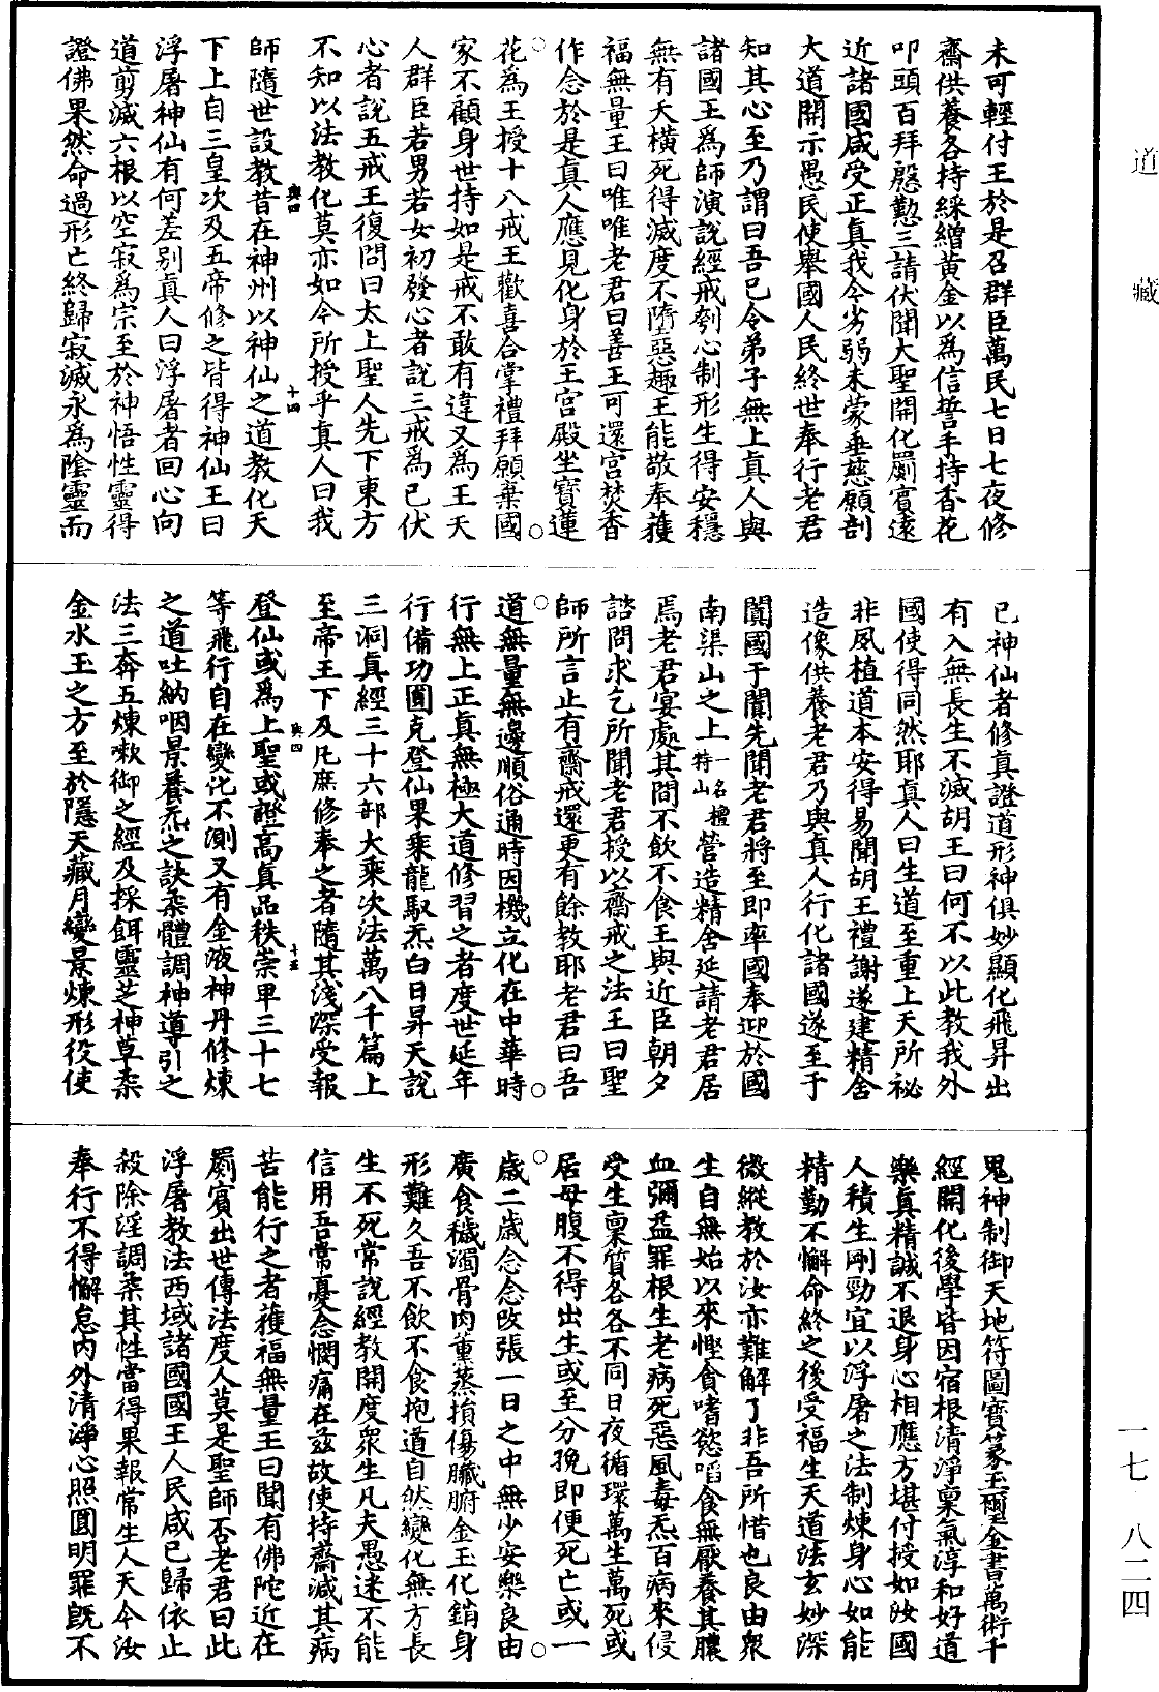 道藏
一七·八二四
未可輕付王於是召群臣萬民七日七夜修
齋供養各持綵繒黃金以爲信誓手持香花
叩頭百拜慇懃三請伏聞大聖開化罽賓遠
近諸國咸受正真我今劣弱未蒙垂慈願剖
大道開示愚民使舉國人民終世奉行老君
知其心至乃謂曰吾已令弟子無上真人與
諸國王爲師演說經戒刳心制形生得安穩
無有夭橫死得滅度不隋惡趣王能敬奉獲
福無量王曰唯唯老君曰善王可還宮焚香
作念於是真人應見化身於王宮殿坐寶蓮
花爲王授十八戒王歡喜合掌禮拜願棄國
家不顧身世持如是戒不敢有違又爲王天
人群臣若男若女初發心者說三戒爲已伏
心者說五戒王復問曰太上聖人先下東方
不知以法教化莫亦如今所授乎真人曰我
輿四
十四
師隨世設教昔在神州以神仙之道教化天
下上自三皇次及五帝修之皆得神仙王曰
浮屠神仙有何差別真人曰浮屠者回心向
道剪滅六根以空寂爲宗至於神悟性靈得
證佛果然命過形亡終歸寂滅永爲陰靈而
已神仙者修真證道形神俱妙顯化飛昇出
有入無長生不滅胡王曰何不以此教我外
國使得同然耶真人曰生道至重上天所祕
非夙植道本安得易聞胡王禮謝遂建精舍
造像供養老君乃與真人行化諸國遂至于
闐國于闐先聞老君將至即率國奉迎於國
南渠山之上一名檀特山營造精舍延請老君居
焉老君宴處其間不飲不食王與近臣朝夕
諮問求乞所聞老君授以齋戒之法王曰聖
師所言止有齋戒還更有餘教耶老君曰吾
道無量無邊順俗通時因機立化在中華時
行無上正真無極大道修習之者度世延年
行備功圓克登仙果乘龍馭炁白日昇天說
三洞真經三十六部大乘次法萬八千篇上
至帝王下及凡庶修奉之者隨其淺深受報
輿四
十五
登仙或爲上聖或證高真品秩崇卑三十七
等飛行自在變化不測又有金液神丹修煉
之道吐納咽景養炁之訣柔體調神導引之
法三奔五煉漱御之經及採餌靈芝神草柔
金水玉之方至於隱天藏月變景煉形役使
鬼神制御天地符圖寶篆玉璽金書萬術千
經開化後學皆因宿根清淨稟氣淳和好道
樂真精誠不退身心相應方堪付授如汝國
人積生剛勁宜以浮屠之法制煉身心如能
精勤不懈命終之後受福生天道法玄妙深
微縱教於汝亦難解了非吾所惜也良由眾
生自無始以來慳貪嗜慾啗食無厭養其膿
血彌益罪根生老病死惡風毒炁百病來侵
受生稟質各各不同日夜循環萬生萬死或
居母腹不得出生或至分挽即便死亡或一
歲二歲念念改張一日之中無少安樂良由
廣食穢濁骨肉薰蒸損傷臟腑金玉化銷身
形難久吾不飲不食抱道自然變化無方長
生不死常說經教開度眾生凡夫愚迷不能
信用吾常憂念憫痛在茲故使持齋減其病
苦能行之者獲福無量王曰聞有佛陀近在
罽賓出世傳法度人莫是聖師否老君曰此
浮屠教法西域諸國國王人民咸已歸依止
殺除淫調柔其性當得果報常生人天今汝
奉行不得懈怠內外清淨心照圓明罪既不